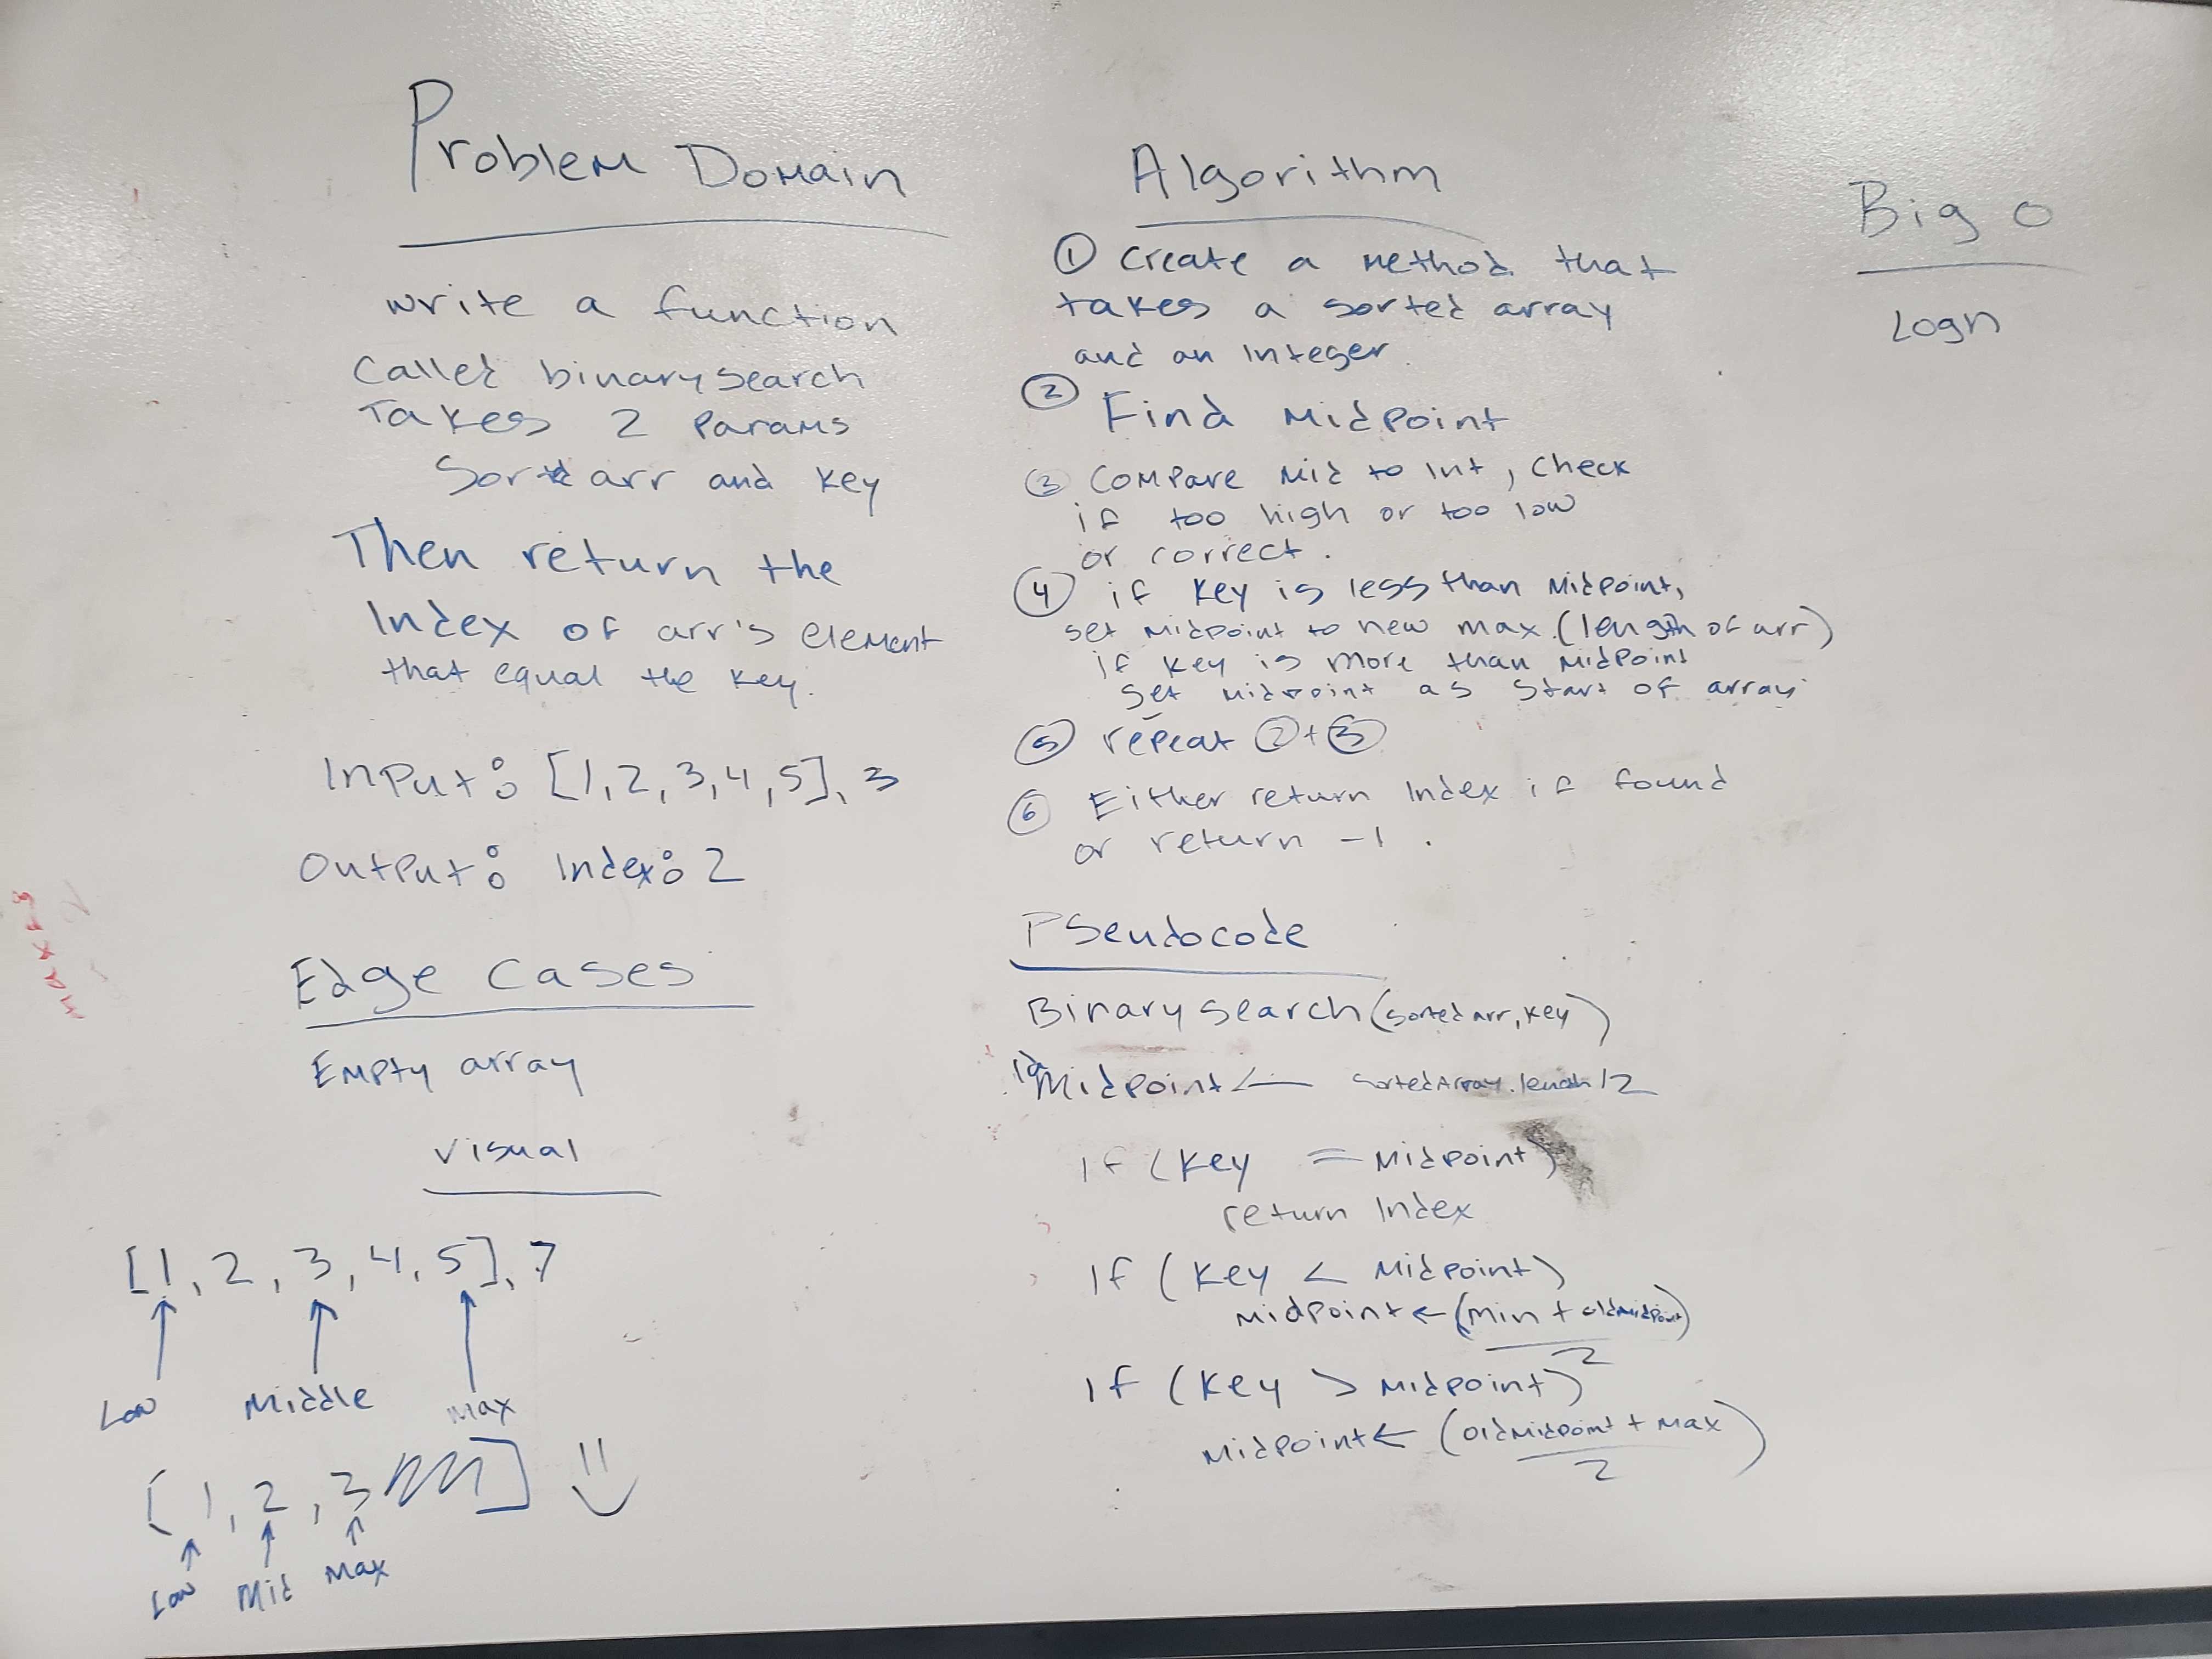 Problem Domain
write a function
Called binarysearch
Takes 2 Params
Sorted arr and key
Then return the
Index of arr's element
that equal the key.
Input: [1,2,3,4,5], 3
Output: Index: 2
Edge Cases
Empty array
Visual
[1, 2, 3, 4, 5], 7
Low Middle Max
[1, 2, 3
Low Mid Max
Algorithm
① Create a method that
takes a sorted array
and an integer.
② Find Midpoint
③ Compare Mid to Int, check
if too high or too low
or correct.
④ if Key is less than Midpoint,
set Midpoint to new max (length of arr)
if key is more than Midpoint
set midpoint as start of array
⑤ repeat ② + ③
⑥ Either return Index if found
or return -1.
Pseudocode
Binary search (sorted arr, key)
Midpoint ← sortedArray.length/2
If (Key = Midpoint)
return Index
If (Key < Midpoint)
Midpoint ← (Min + oldMidpoint)
2
If (Key > Midpoint)
Midpoint ← (oldMidpoint + Max)
2
Big O
Logn